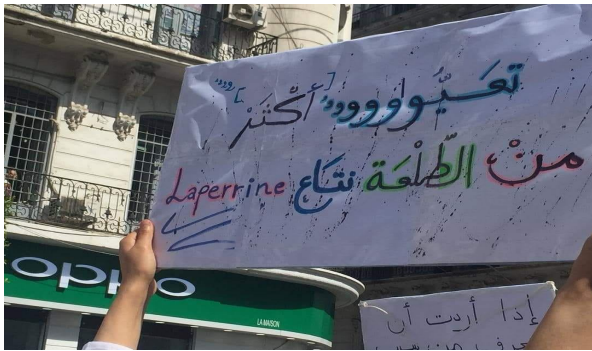 تعَيُّوووووو أكْثَرْ [ووو]
منْ الطّلْعَة نتَاع Laperrine
oppo
LA MAISON
إذا أردت أن